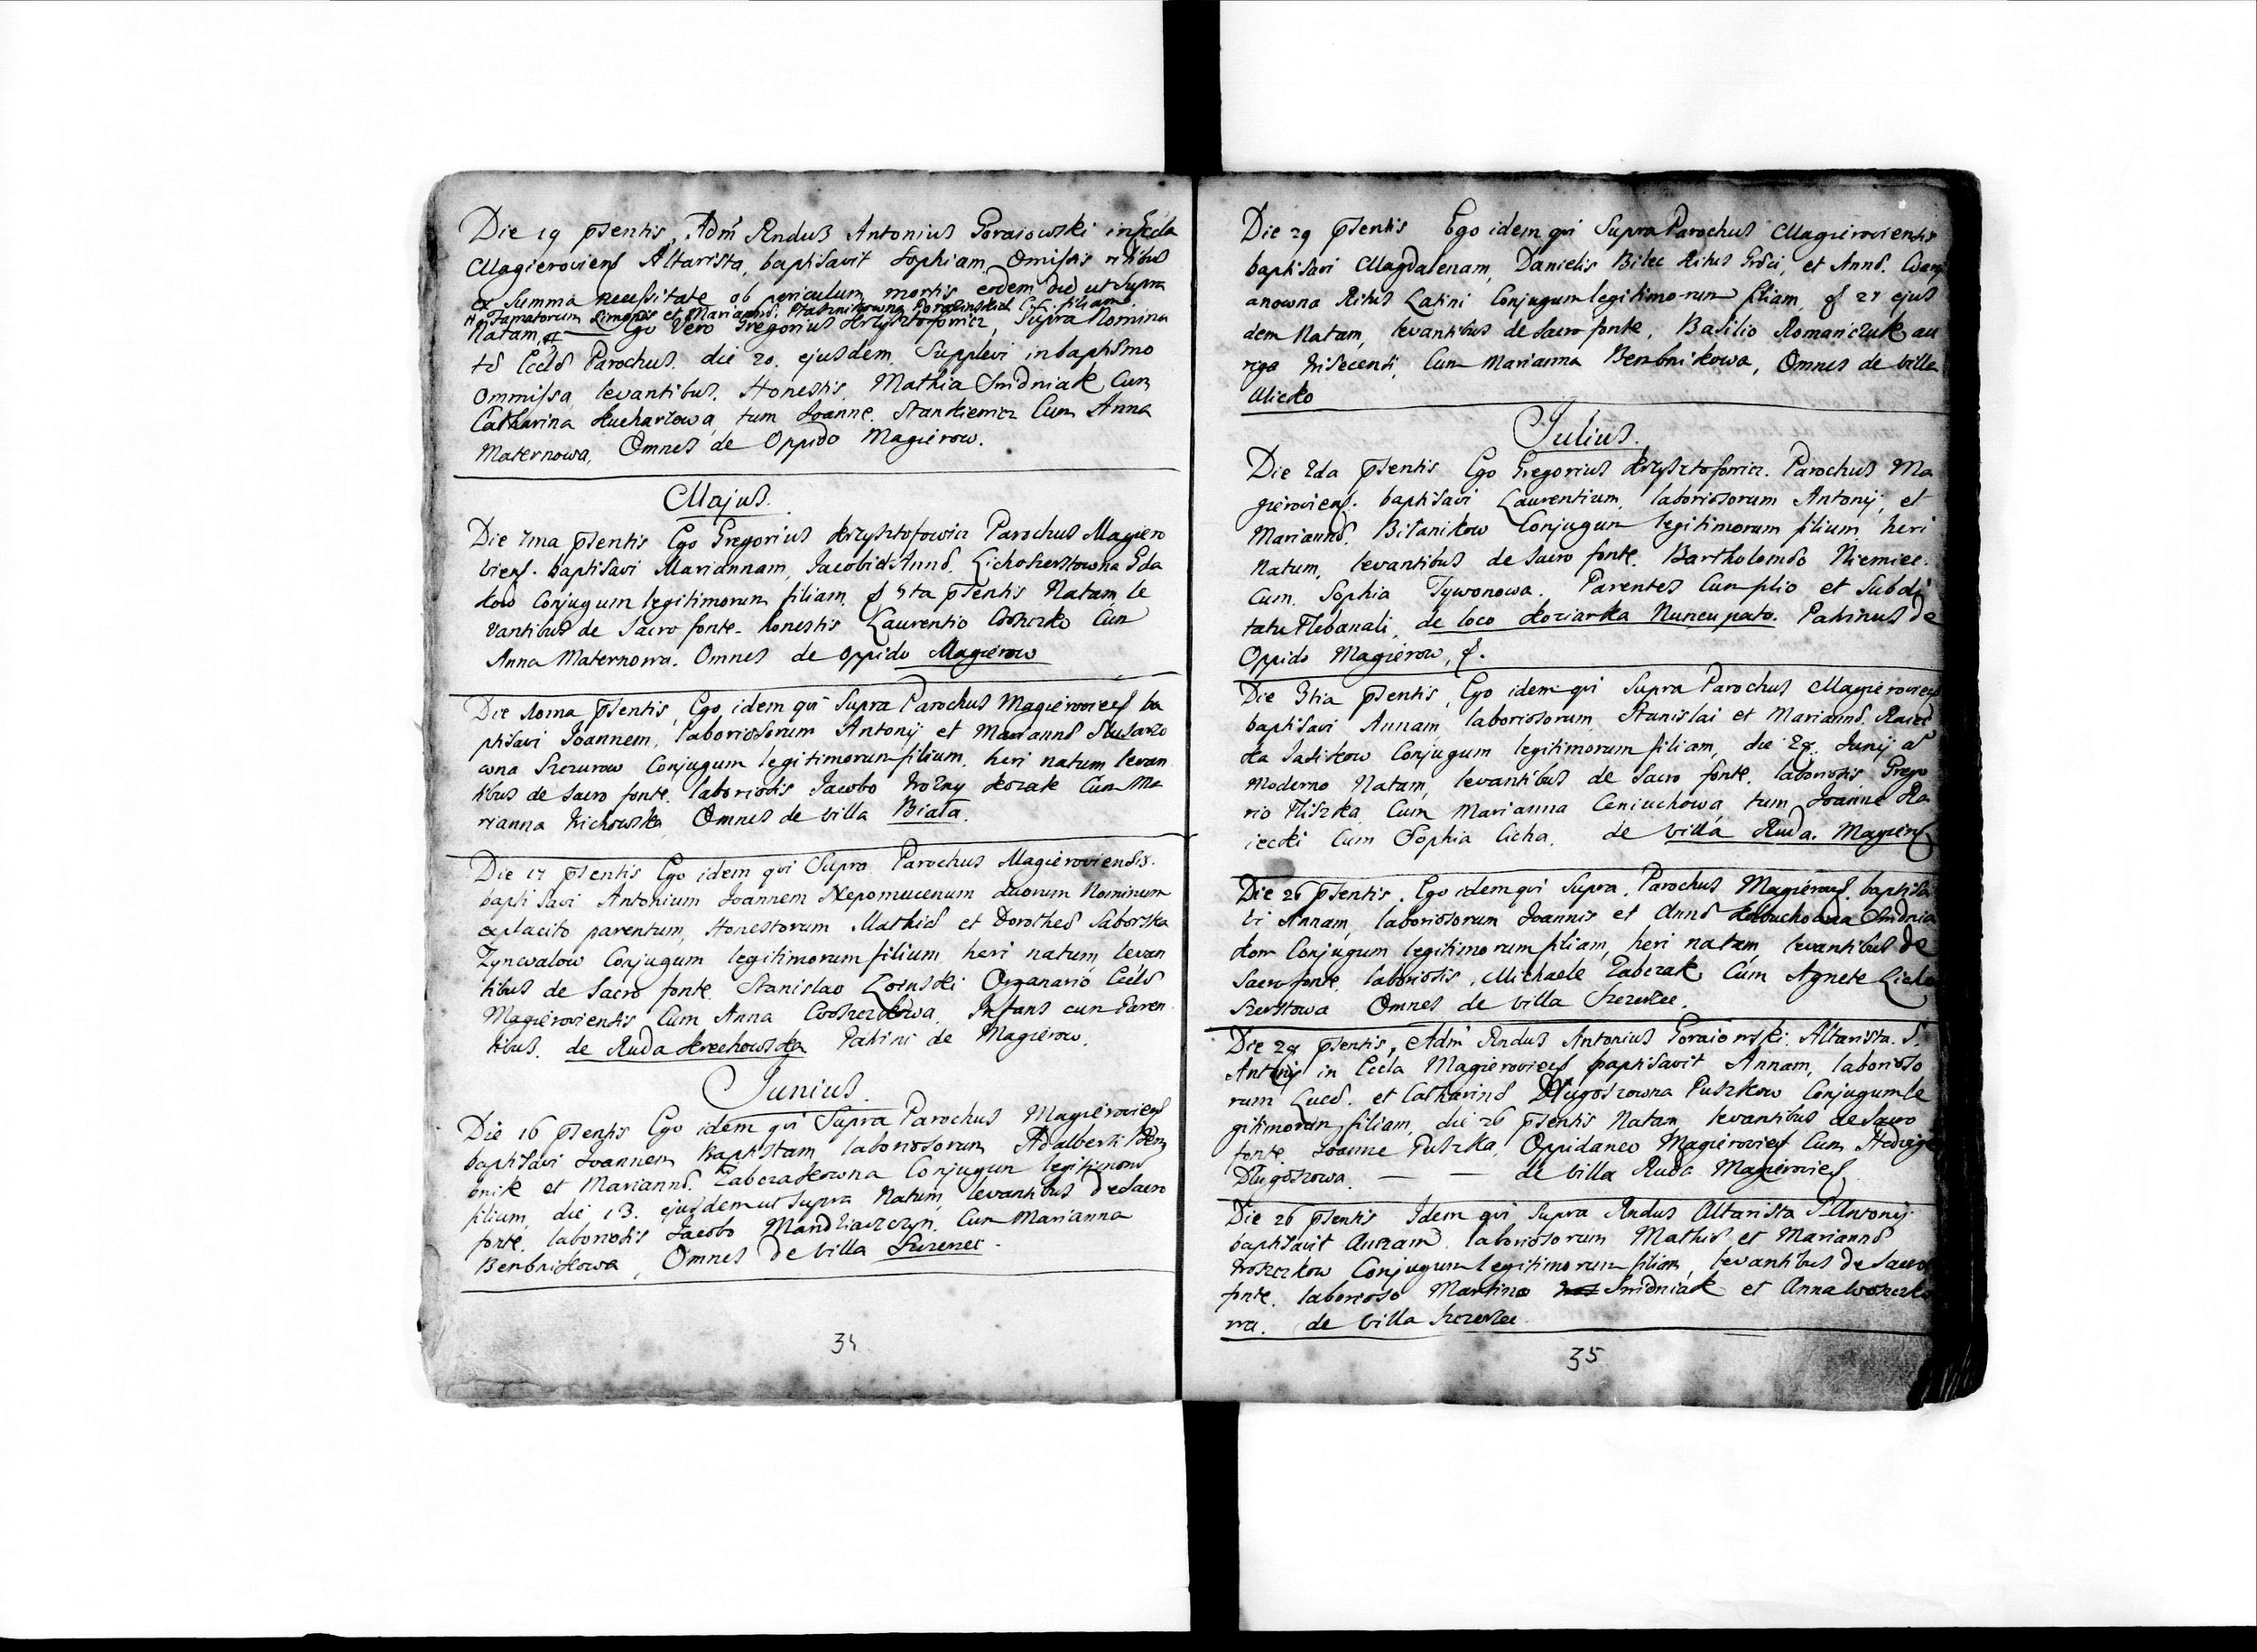 Die 19 psentis, Adm Rndus Antonius Goraiowski in Eccla
Magieroviens Altarista, baptisavit Sophiam, Omissis ritibus
ex Summa necessitate ob periculum mortis eodem die ut Supra
# Famatorum Simonis et Mariannæ C.L. filiam.
Natam, # Ego Vero Gregorius Krzysztofowicz, Supra Nomina
tæ Ecclæ Parochus. die 20. ejusdem Supplevi in baptismo
Ommissa, levantibus. Honestis. Mathia Snidniak Cum
Catharina Kucharzowa, tum Joanne. Stankiewicz Cum Anna
Maternowa, Omnes de Oppido Magierow.
Majus.
Die 7ma psentis Ego Gregorius Krzysztofowicz Parochus Magiero
viens. baptisavi Mariannam, Jacobi & Annæ. Lichoszerstowna Gda
kow Conjugum legitimorum filiam, & 5ta psentis Natam, le
vantibus de Sacro fonte. honestis Laurentio Woszczko Cum
Anna Maternowa. Omnes de Oppido Magierow
Die 10ma psentis, Ego idem qui Supra Parochus Magieroviens ba
ptisavi Joannem, laboriosorum Antonij et Mariannæ Slusarzo
wna Szczurow Conjugum legitimorum filium, heri natum levan
tibus de Sacro fonte. laboriosis Jacobo Wozny Kozak Cum Ma
rianna Wichowska, Omnes de villa Biała.
Die 17 psentis Ego idem qui Supra Parochus Magieroviensis.
baptisavi Antonium Joannem Nepomucenum duorum Nominum
ex placito parentum, Honestorum Mathiæ et Dorotheæ Saborska
Zyncvalow Conjugum legitimorum filium, heri natum, levan
tibus de Sacro fonte. Stanislao Organario Ecclæ
Magieroviensis Cum Anna Woszczkowa, Infans cum Paren
tibus. de Ruda Krechowska Patrini de Magierow.
Junius.
Die 16 psentis Ego idem qui Supra Parochus Magieroviens
baptisavi Joannem Baptistam, laboriosorum Adalberti Bem
bnik et Mariannæ. Zabczakowna Conjugum legitimorum
filium, die 13. ejusdem ut Supra Natum, levantibus de Sacro
fonte. laboriosis Jacobo Mandziaszczyn. Cum Marianna
Benbnikowa, Omnes de villa
34
Die 29 psentis Ego idem qui Supra Parochus Magieroviensis
baptisavi Magdalenam, Danielis Bilec Ritus Græci, et Annæ.
anowna Ritus Latini Conjugum legitimorum filiam, & 27 ejus
dem Natam, levantibus de Sacro fonte. Basilio Romanczuk au
riga Cum Marianna Benbnikowa, Omnes de villa
Ulicko
Julius.
Die 2da psentis Ego Gregorius Krzysztofowicz. Parochus Ma
gieroviens. baptisavi Laurentium, laboriosorum Antonij, et
Mariannæ. Bitanikow Conjugum legitimorum filium, heri
Natum, levantibus de Sacro fonte. Bartholomæo Niemiec.
Cum. Sophia Tywonowa. Parentes Cum filio et Subdi
tatu Plebanali, de loco Koziarka Nuncupato. Patrinus de
Oppido Magierow, &.
Die 3tia psentis, Ego idem qui Supra Parochus Magieroviens
baptisavi Annam, laboriosorum Stanislai et Mariannæ.
ka Sasikow Conjugum legitimorum filiam, die 29. Junij a
Moderno Natam, levantibus de Sacro fonte. laboriosis Grego
rio Pliszka, Cum Marianna Ceniuchowa, tum Joanne Ra
iecki Cum Sophia Cicha, de villa Ruda. Magierow
Die 26 psentis. Ego idem qui Supra. Parochus Magierows. baptisa
vi Annam, laboriosorum Joannis et Annæ Snidnia
kow Conjugum legitimorum filiam, heri natam, levantibus de
Sacro fonte. laboriosis, Michaele Zabczak Cum Agnete Licho
szerstowa Omnes de villa Szczerzec.
Die 28 psentis, Adm Rndus Antonius Goraiowski. Altarista. S.
Antonij in Eccla Magieroviens baptisavit Annam, laborioso
rum Lucæ. et Catharinæ Długoszowna Puszkow Conjugum le
gitimorum filiam, die 26 psentis Natam, levantibus de Sacro
fonte. Joanne Puszka, Oppidaneo Magieroviens Cum Hedvige
Długoszowa. — — de villa Ruda Magierovies
Die 26 psentis Idem qui Supra Rndus Altarista S Antonij
baptisavit Annam. laboriosorum Mathiæ et Mariannæ
Woszczkow Conjugum legitimorum filiam, levantibus de Sacro
fonte. laborioso Martino Snidniak et Anna Woszczko
wa. de villa Szczerzec.
35